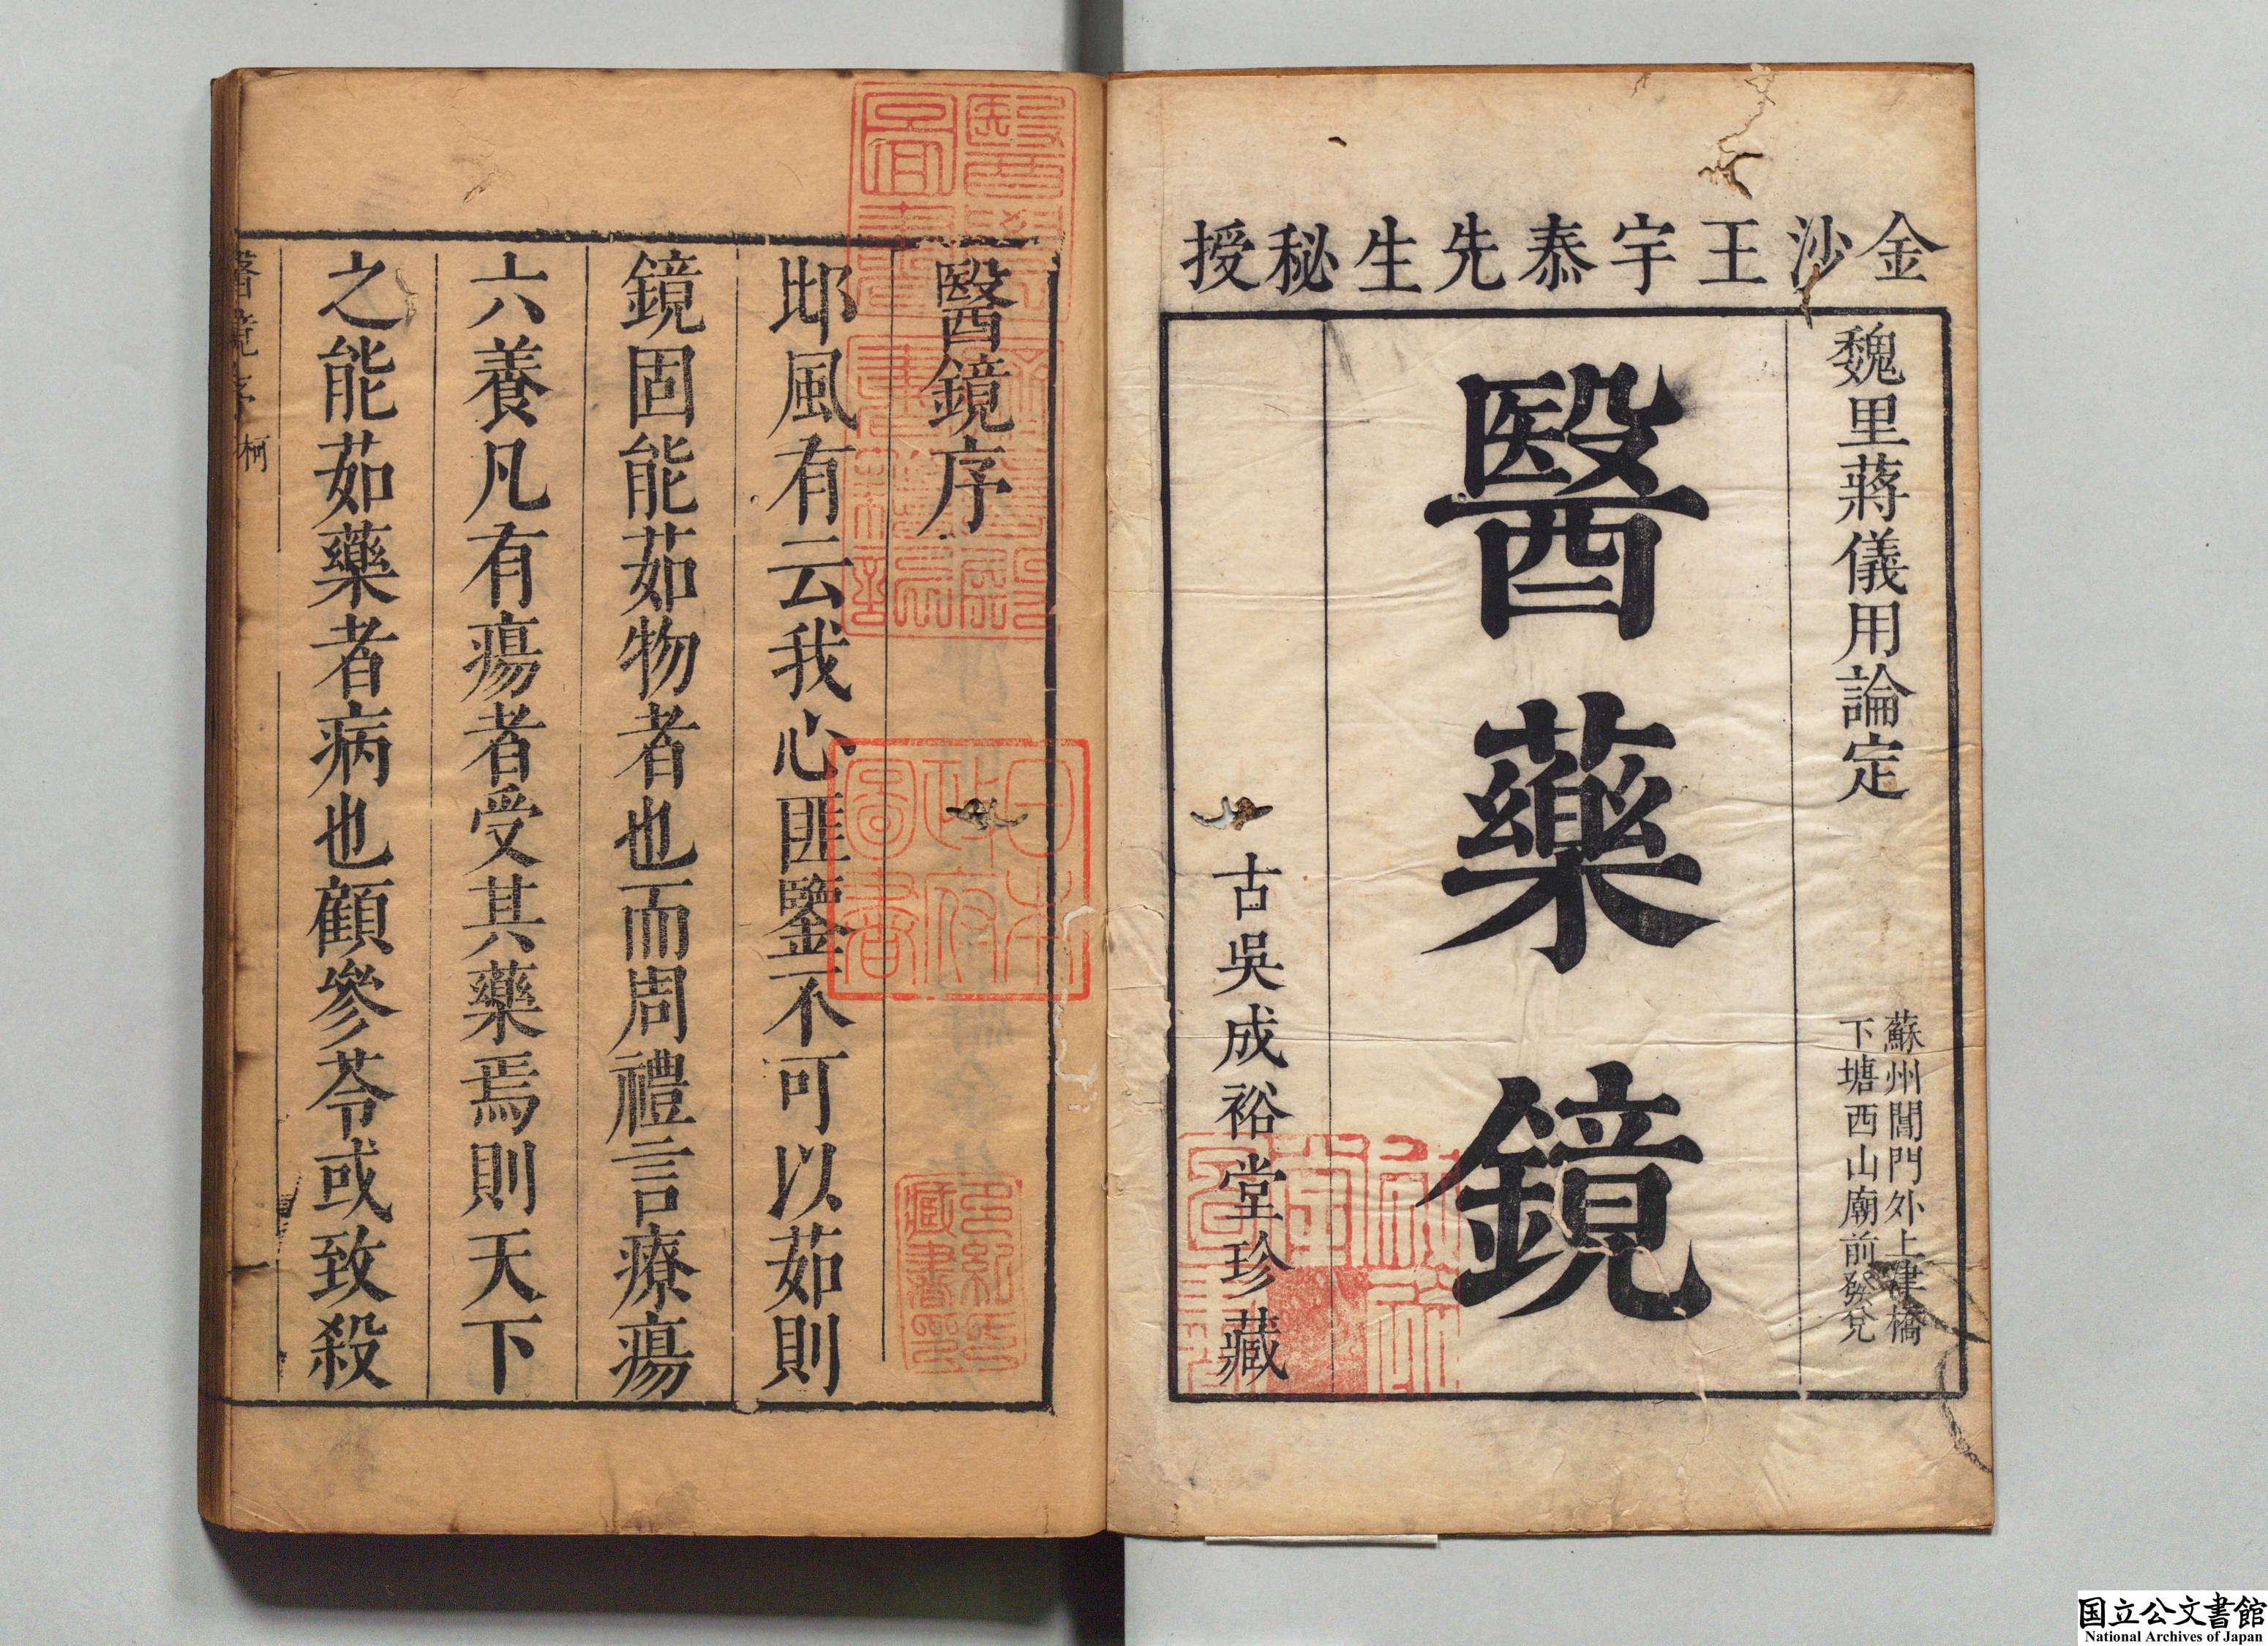 金沙王宇泰先生秘授
魏里蔣儀用論定
蘇州閶門外上津橋
下塘西山廟前發兌
醫藥鏡
古吳成裕堂珍藏
醫鏡序
邶風有云我心匪鑒不可以茹則
鏡固能茹物者也而周禮言療瘍
六養凡有瘍者受其藥焉則天下
之能茹藥者病也顧參苓或致殺
醫鏡序
柯
一
日本
政府
圖書
国立公文書館
National Archives of Japan